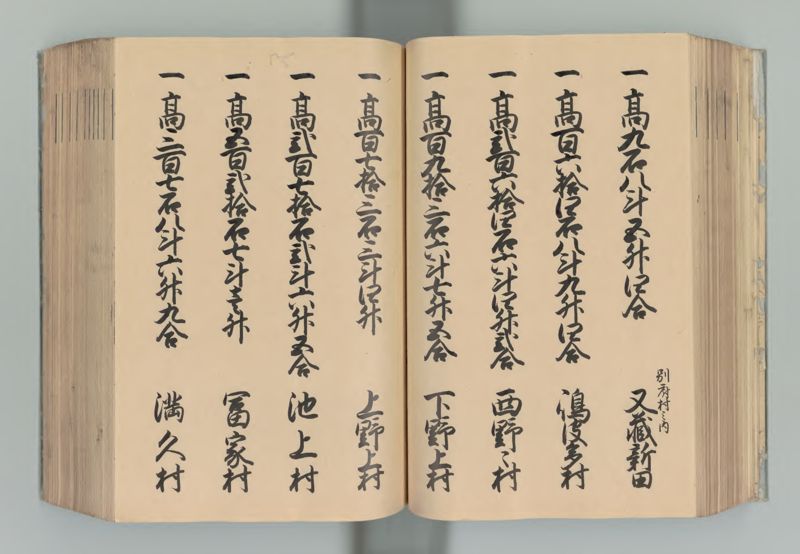 一 高九石八斗五升四合
別府村之内
又蔵新田
一 高百六拾四石八斗九升四合
村
一 高弐百六拾四石六斗四升弐合
西野々村
一 高百九拾三石六斗七升五合
下野上村
一 高百七拾三石三斗四升
上野上村
一 高弐百七拾石弐斗六升五合
池上村
一 高五百弐拾石七斗壱升
冨家村
一 高三百七石八斗六升九合
満久村